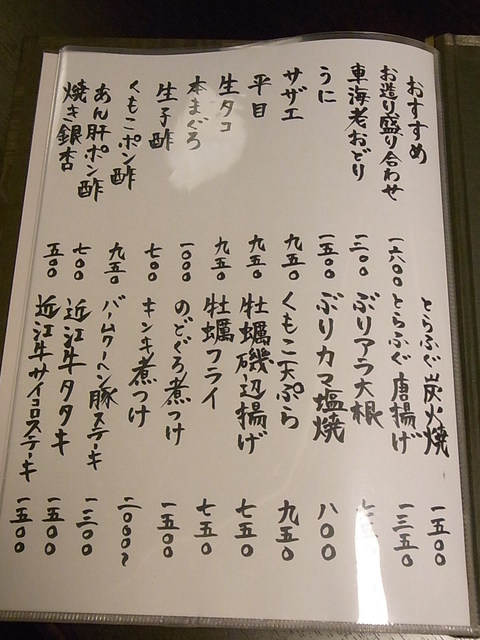 おすすめ
お造り盛り合わせ 一六〇〇
車海老おどり
うに 一五〇〇
サザエ 九五〇
平目 九五〇
生タコ 九五〇
本まぐろ 一〇〇〇
生子酢 七〇〇
くもこポン酢 九五〇
あん肝ポン酢 七〇〇
焼き銀杏 五〇〇
とらふぐ炭火焼 一五〇〇
とらふぐ唐揚げ 一三五〇
ぶりアラ大根
ぶりカマ塩焼 八〇〇
くもこ天ぷら 九五〇
牡蠣磯辺揚げ 七五〇
牡蠣フライ 七五〇
のどぐろ煮つけ 一五〇〇
キンキ煮つけ 二〇〇〇〜
バームクーヘン豚ステーキ 一三〇〇
近江牛タタキ 一五〇〇
近江牛サイコロステーキ 一五〇〇